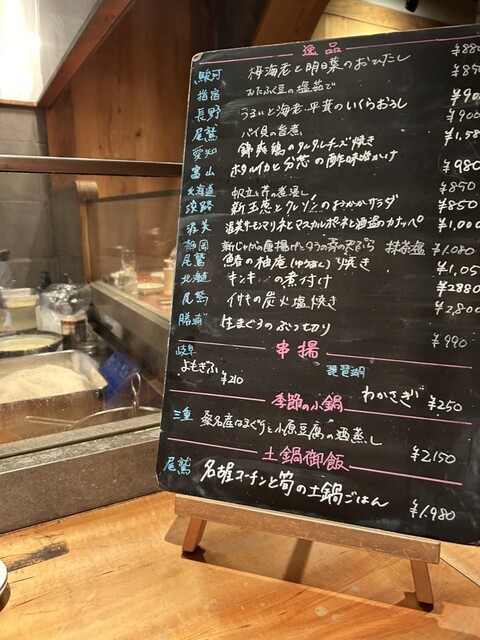 逸品
駿河 桜海老と明日葉のおひたし ¥880
指宿 おたふく豆の塩茹で ¥850
長野 うるいと海老、平茸のいくらおろし ¥900
尾鷲 バイ貝の旨煮 ¥900
愛知 錦爽鶏のタルタルチーズ焼き ¥1,58
富山 ホタルイカと分葱の酢味噌かけ ¥980
北海道 帆立と芹の煮浸し ¥850
淡路 新玉葱とクレソンのおかかサラダ ¥850
渥美 マスカルポーネと酒盗のカナッペ ¥1,000
静岡 新じゃがの唐揚げとタラの芽の天ぷら 抹茶塩 ¥1,080
尾鷲 鰆の柚庵(ゆうあん)焼き ¥1,05
北海道 キンキの煮付け ¥2880
尾鷲 イサキの炭火塩焼き ¥2,800
勝浦 生まぐろのぶつ切り ¥990
串揚
岐阜 よもぎふ ¥210
琵琶湖 わかさぎ ¥250
季節の小鍋
三重 桑名産はまぐりと小原豆腐の酒蒸し ¥2150
土鍋御飯
尾鷲 名古屋コーチンと筍の土鍋ごはん ¥1,980